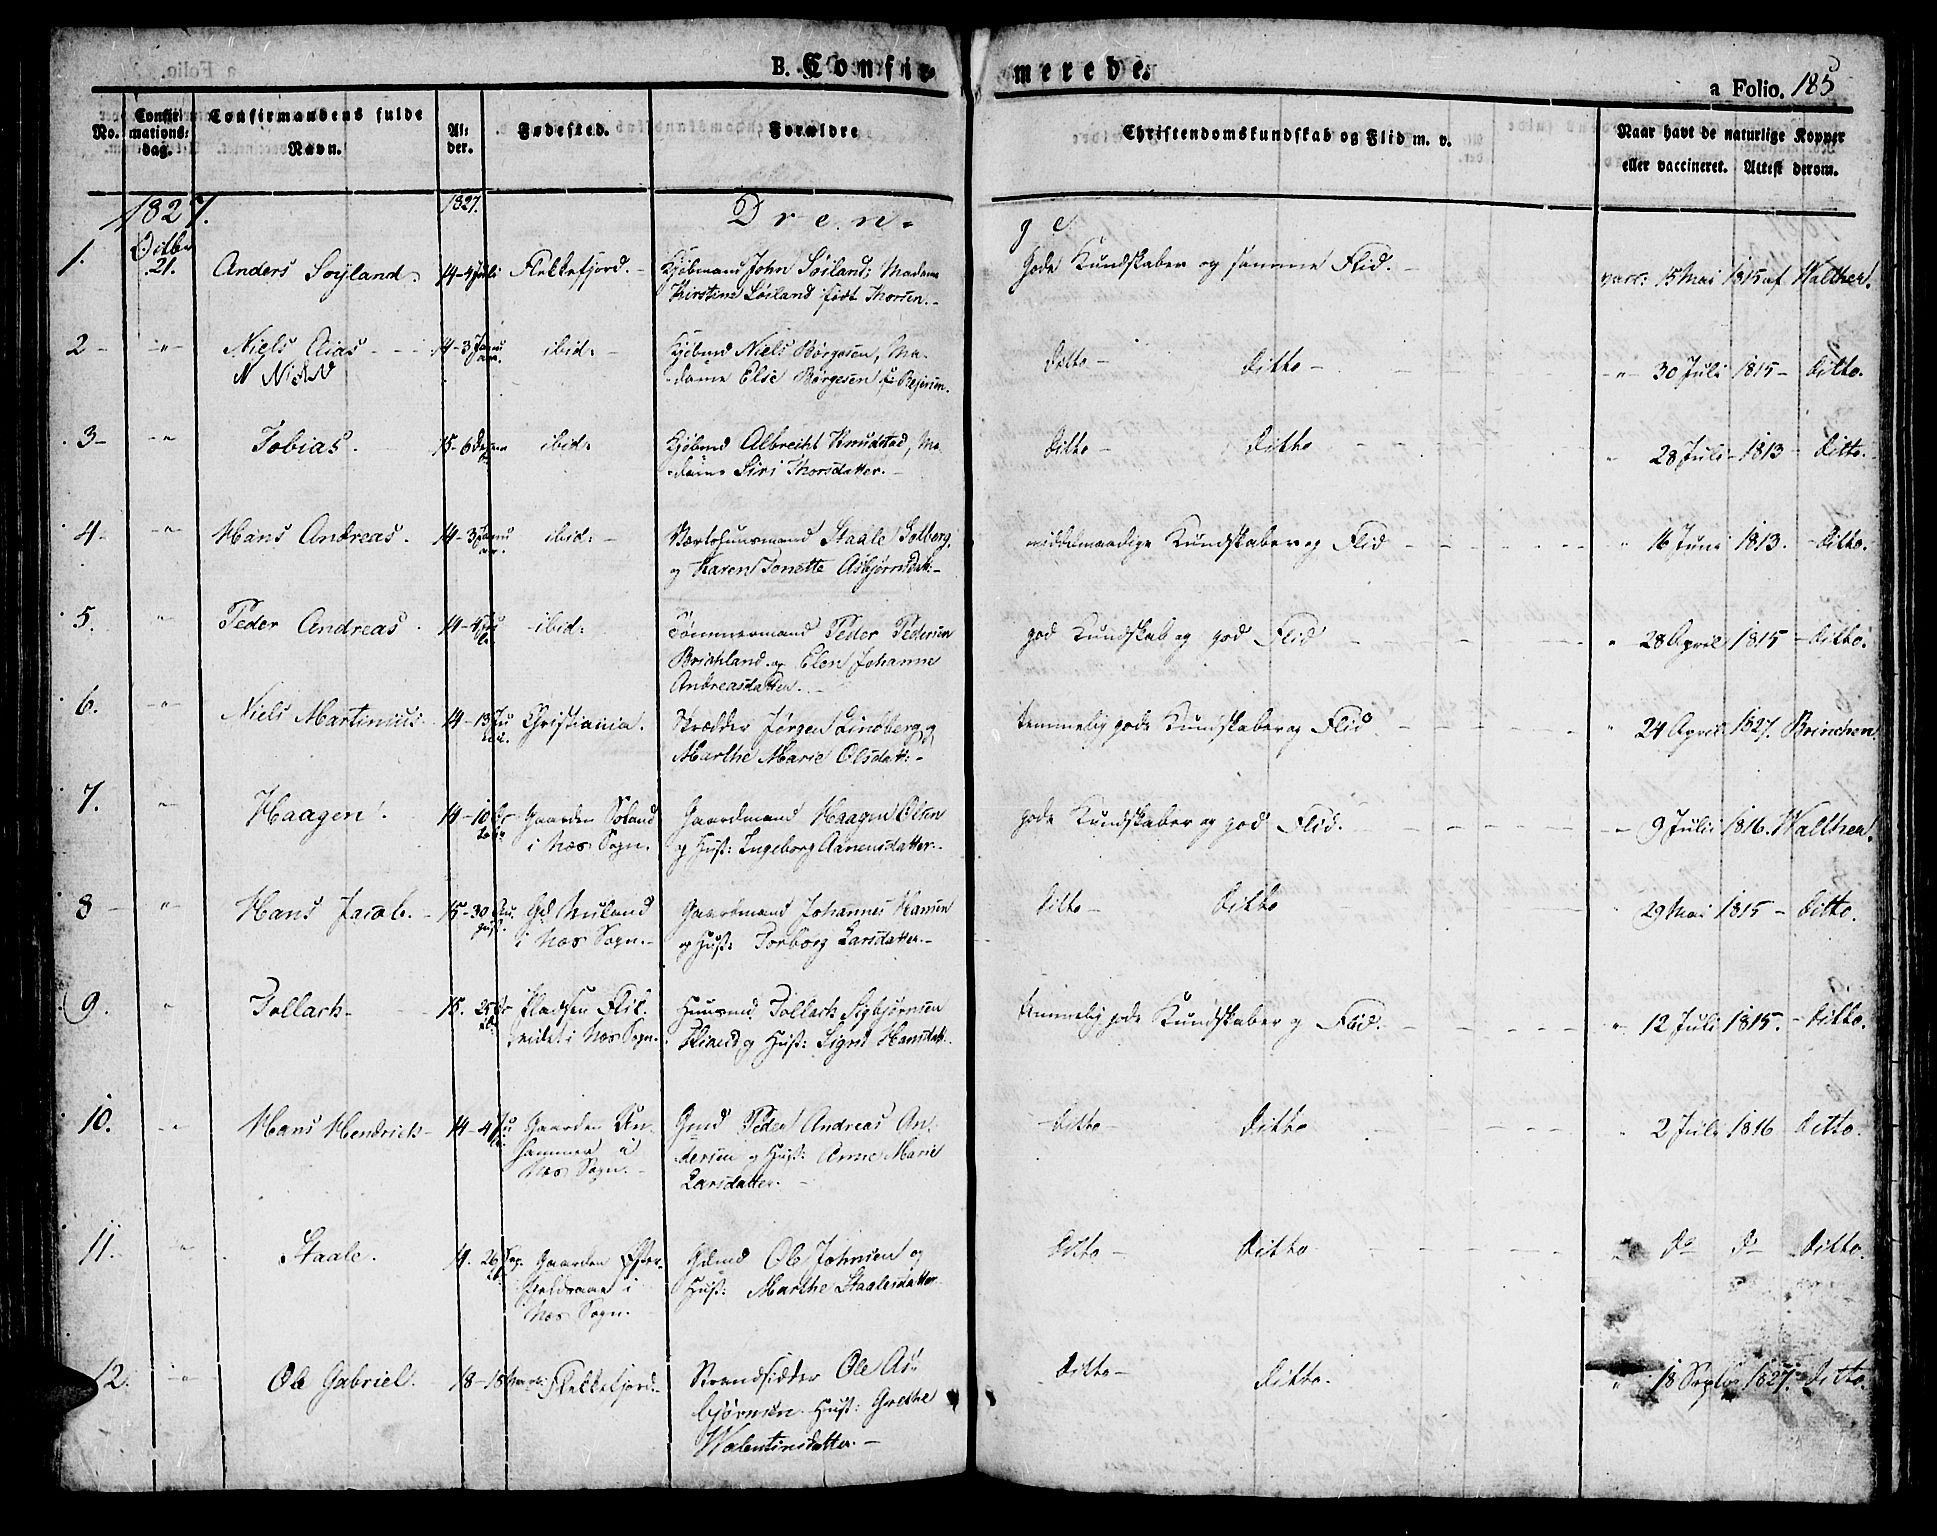 B. Confir-
merede.
a Folio. 185
No.
Confir-
mations-
dag.
Confirmandens fulde
Navn.
Al-
der.
Fødested.
Forældre
Christendomskundskab og Flid m. v.
Naar havt de naturlige Kopper
eller vaccineret. Attest derom.
1827.
1827.
Dren-
ge
1. Octbr 21. Anders Soyland. 14-4 Juli Flekkefjord. Kjøbmand John Søiland; Madame
Kirstine Søiland født Thorsen.
Gode Kundskaber og samme Flid. vacc: 15 Mai 1815 af Walther.
2 - " Niels Aias 14-3 Janu ibid: Kjøbmd Niels Børgesen, Ma-
dame Else Børgesen
Ditto Ditto " 30 Juli 1815 - Ditto.
3 - " Tobias. 15-6 ibid: Kjøbmd Albrecht Knudstad, Ma-
dame Siri Thorsdatter.
Ditto Ditto " 28 Juli 1813 - Ditto.
4 - " Hans Andreas. 14-3 Janu ibid: Vertshuusmand Staale Solberg,
og Karen Tonette Asbjørnsdatt:
middelmaadige Kundskaber og Flid " 16 Juni 1813. - Ditto.
5. " Peder Andreas. 14-4 Ju li ibid: Tømmermand Peder Pedersen
Brichland og Elen Johanne
Andreasdatter.
god Kundskab og god Flid " 28 April 1815 - Ditto.
6. " Niels Martinius 14-13 Ju Christiania. Skrædder Jørgen Lindberg og
Marthe Marie Olsdatt:
temmelig gode Kundskaber og Flid " 24 April 1827. Brinchen.
7. " Haagen. 14-10 Gaarden Soland
i Næs Sogn. Gaardmand Haagen Olsen
og Hust: Ingeborg Aanensdatter.
gode Kundskaber og god Flid. " 9 Juli 1816. Walther.
8 - " Hans Jacob. 15-30 Au- gust. Gd
i Næs Sogn. Gaardmand Johannes Hansen
og Hust: Torborg Larsdatter.
Ditto Ditto 29 Mai 1815 - Ditto.
9. " Tollach 15. 25 Pladsen
i Næs Sogn. Huusmd Tollach Sigbjørnsen
og Hust: Sigrid Hansdatt.
temmelig gode Kundskaber og Flid. " 12 Juli 1815. - Ditto.
10. " Hans Hendrich 14-4 Ju Gaarden
i
Næs Sogn. Gmd Peder Andreas An-
dersen og Hust: Anne Marie
Larsdatter.
Ditto Ditto " 2 Juli 1816 Ditto.
11. " Staale. 14. 26 Sep. Gaarden
i
Næs Sogn. Gdmd Ole Johnsen og
Hust: Marthe Staalesdatter
Ditto Ditto " Do Do Ditto.
12. " Ole Gabriel. 18-18 Flekkefjord. Strandsidder Ole As-
bjørnsen. Hust: Grethe
Walentinsdatter.
Ditto Ditto. " 18 Septbr 1827. Ditto.